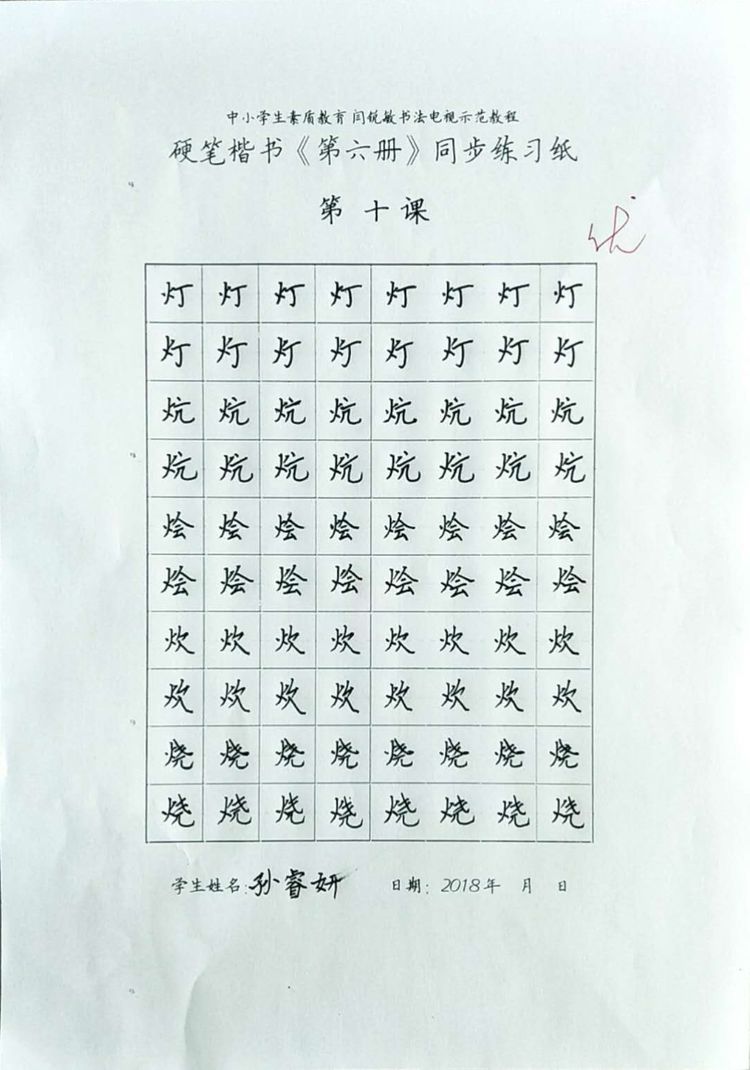 中小学生素质教育 闫锐敏书法电视示范教程
硬笔楷书《第六册》同步练习纸
第 十 课
优
灯 灯 灯 灯 灯 灯 灯 灯
灯 灯 灯 灯 灯 灯 灯 灯
炕 炕 炕 炕 炕 炕 炕 炕
炕 炕 炕 炕 炕 炕 炕 炕
烩 烩 烩 烩 烩 烩 烩 烩
烩 烩 烩 烩 烩 烩 烩 烩
炊 炊 炊 炊 炊 炊 炊 炊
炊 炊 炊 炊 炊 炊 炊 炊
烧 烧 烧 烧 烧 烧 烧 烧
烧 烧 烧 烧 烧 烧 烧 烧
学生姓名:孙睿妍 日期: 2018年 月 日